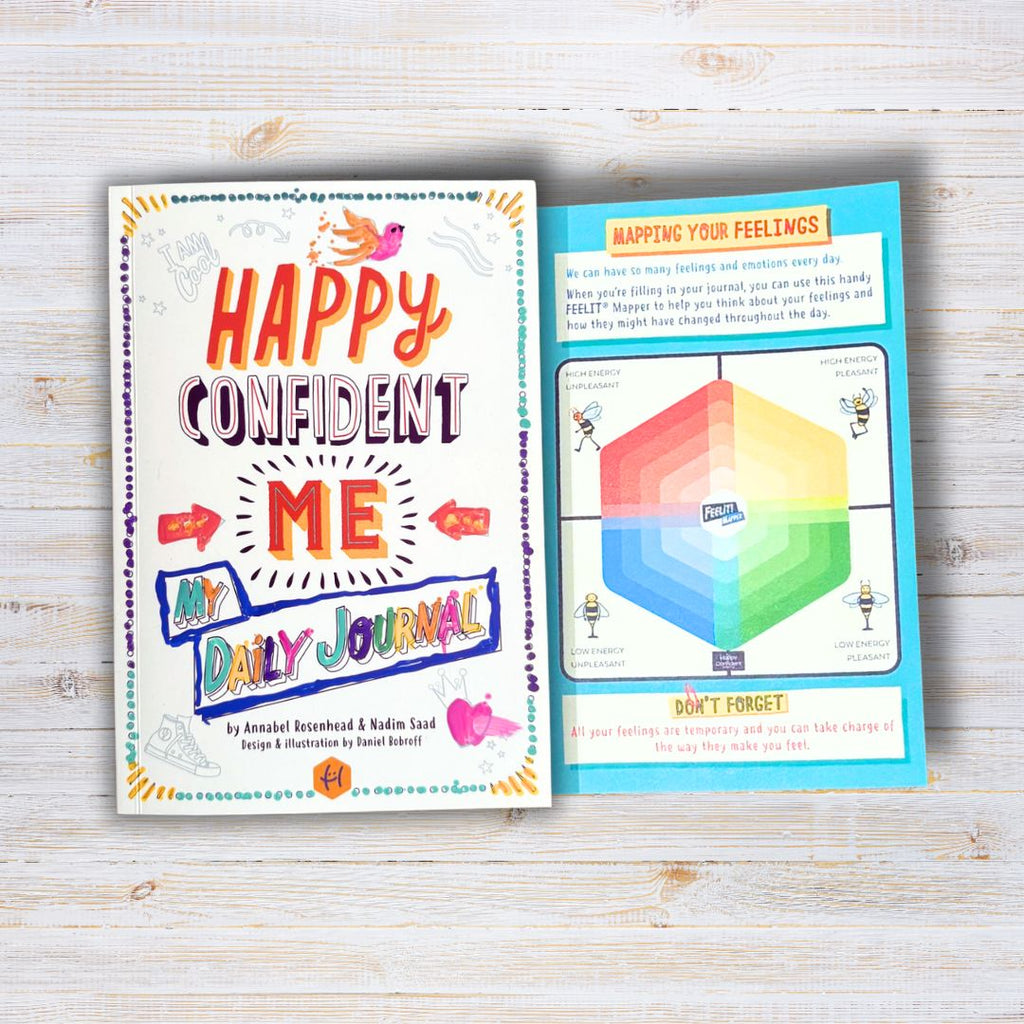 I AM
Cool
HAPPY
CONFIDENT
ME
MY
DAILY JOURNAL
by Annabel Rosenhead & Nadim Saad
Design & illustration by Daniel Bobroff
MAPPING YOUR FEELINGS
We can have so many feelings and emotions every day.
When you're filling in your journal, you can use this handy
FEELIT® Mapper to help you think about your feelings and
how they might have changed throughout the day.
HIGH ENERGY
UNPLEASANT
HIGH ENERGY
PLEASANT
FEELIT!
MAPPER
LOW ENERGY
UNPLEASANT
LOW ENERGY
PLEASANT
Happy
Confident
DON'T FORGET
All your feelings are temporary and you can take charge of
the way they make you feel.